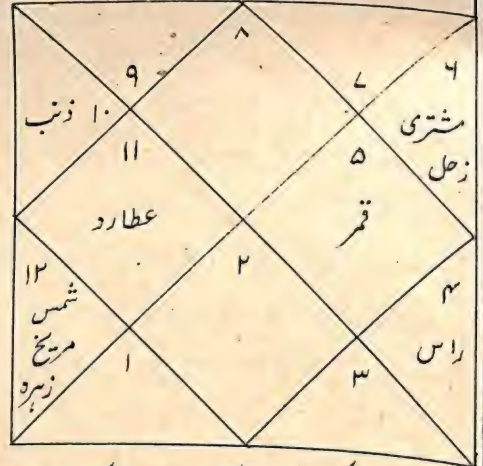 ۸
۹
۷
۶
مشتری
زحل
۱۰ ذنب
۱۱
عطارد
۵
قمر
۲
۱۲
شمس
مریخ
زہرہ
۴
راس
۱
۳